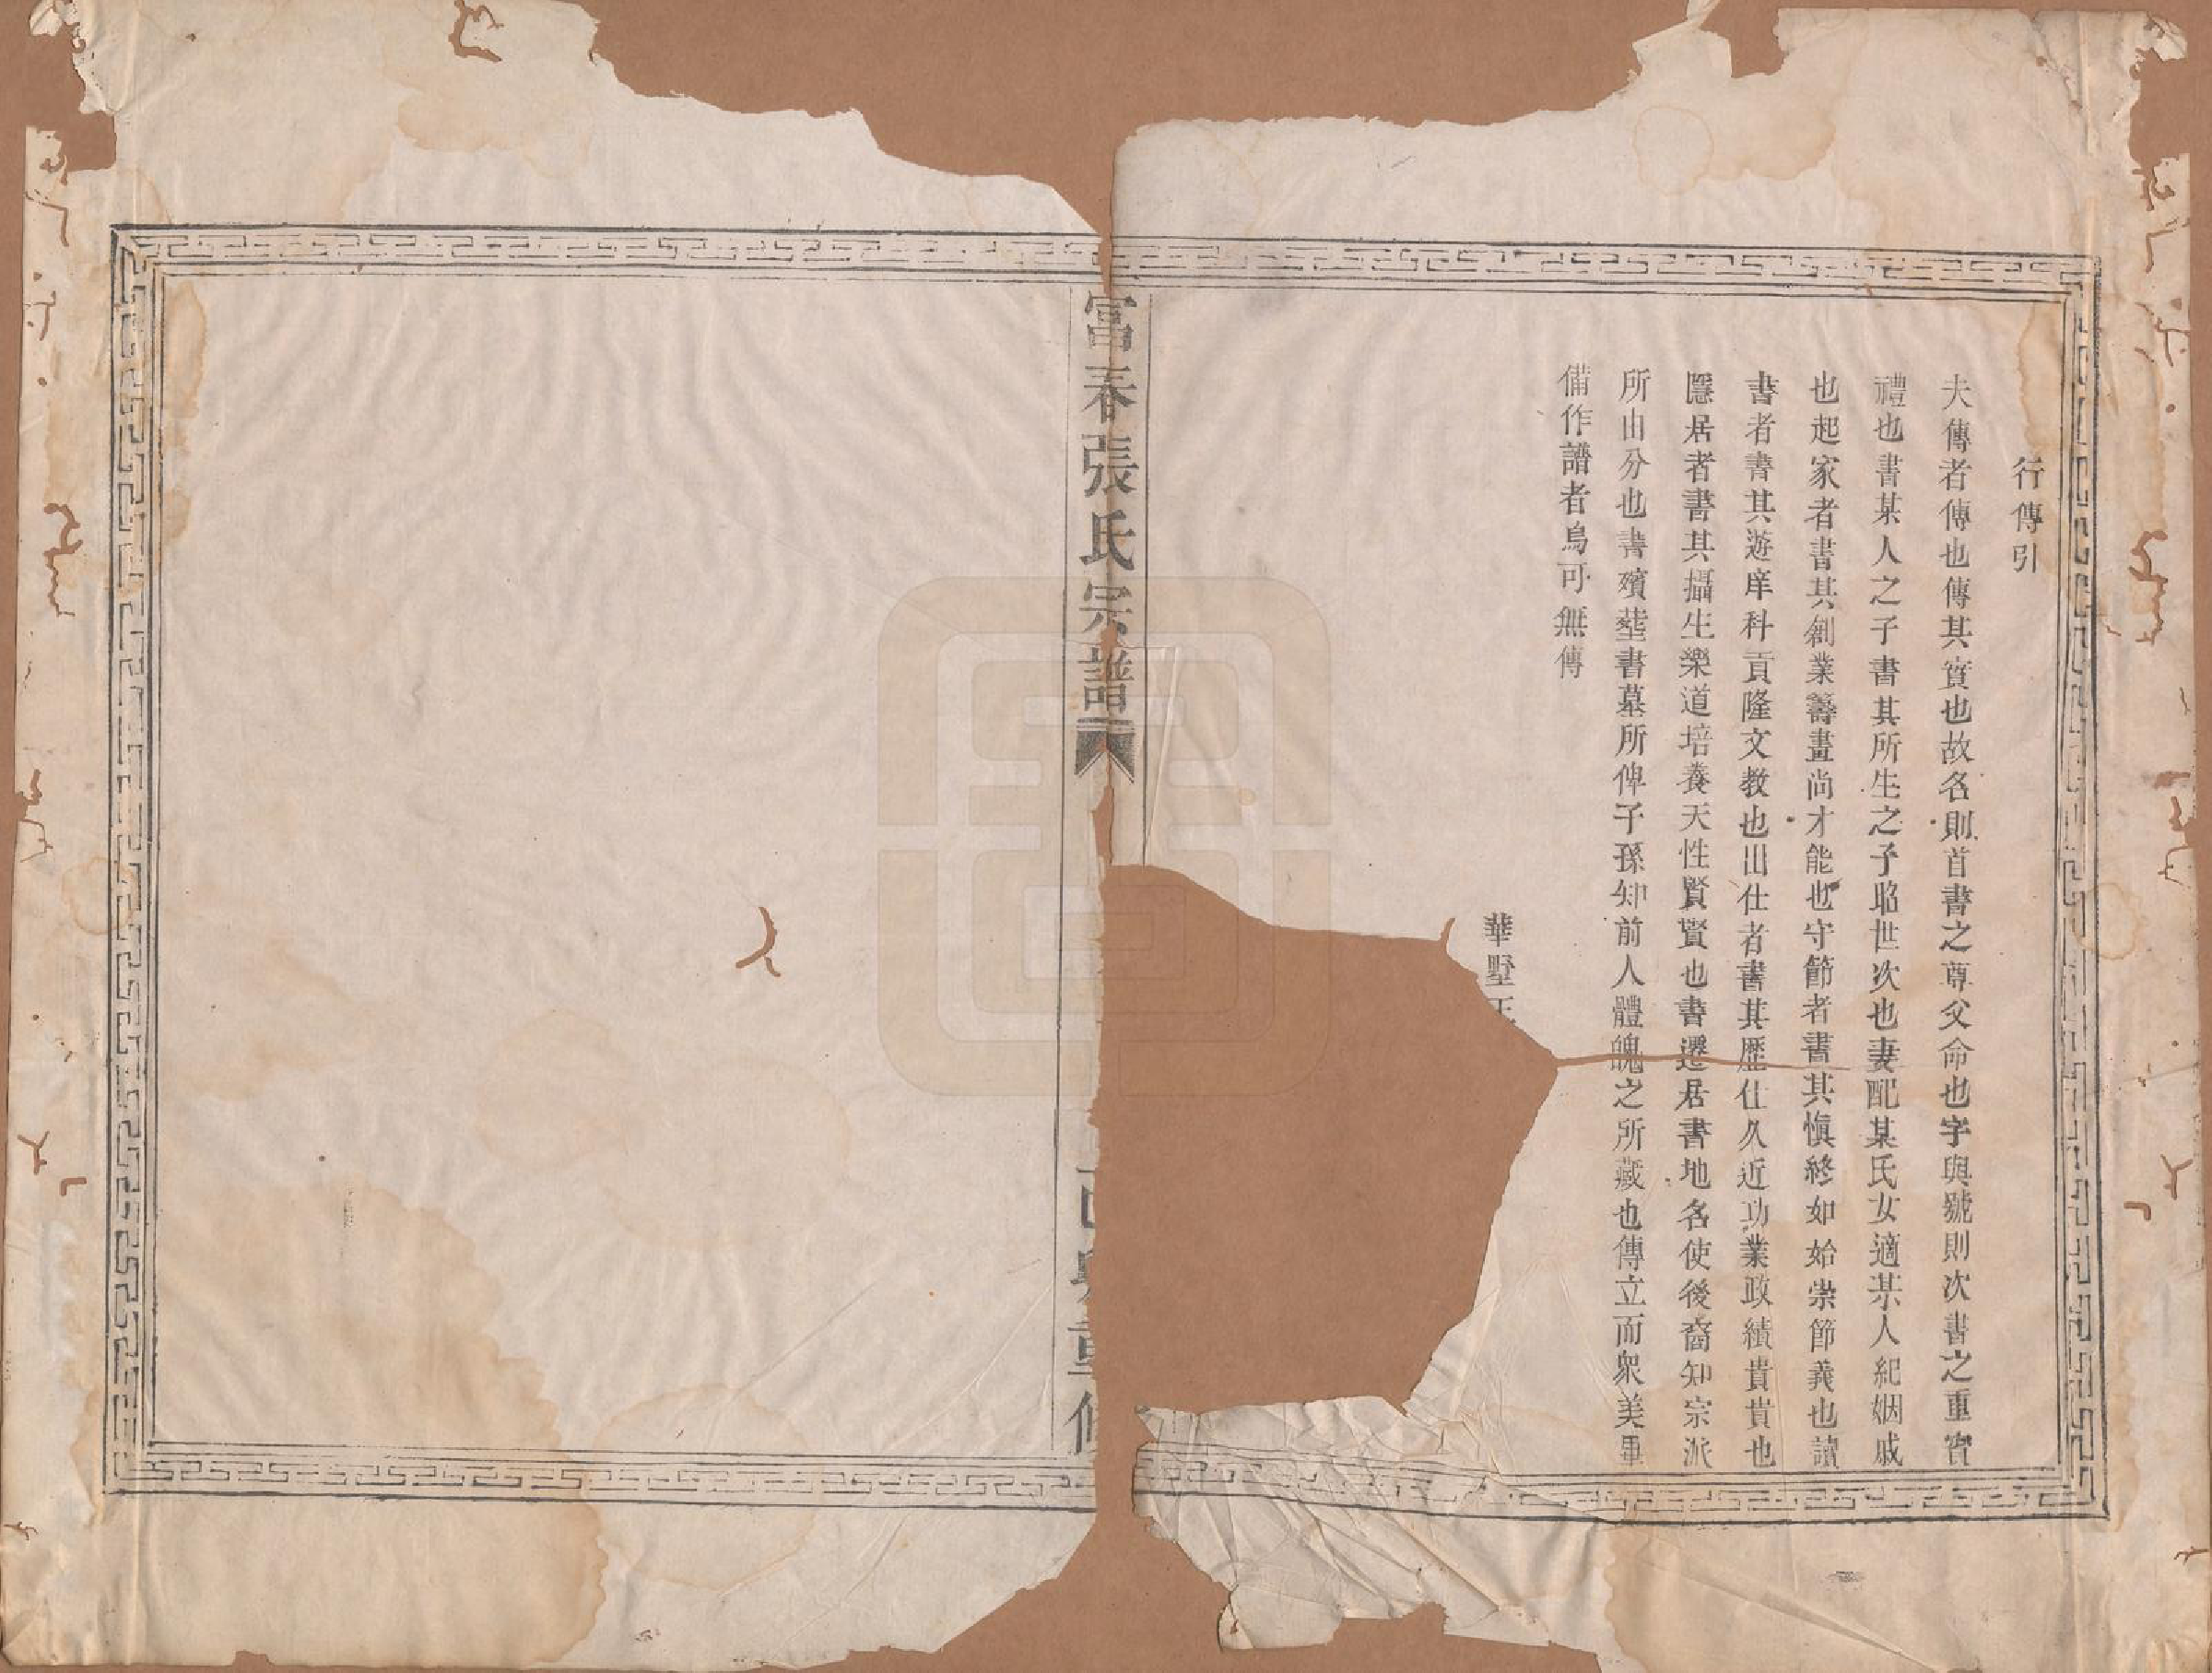 行傳引
夫傳者傳也傳其實也故名則首書之尊父命也字與號則次書之重賓
禮也書某人之子書其所生之子昭世次也妻配某氏女適某人紀姻戚
也起家者書其創業籌畫尚才能也守節者書其慎終如始崇節義也讀
書者書其遊庠科貢隆文教也出仕者書其歷仕久近功業政績貴貴也
隱居者書其攝生樂道培養天性賢賢也書遷居書地名使後裔知宗派
所由分也書殯塟書墓所俾子孫知前人體魄之所藏也傳立而衆美畢
備作譜者烏可無傳
華墅王
富春張氏宗譜
重修